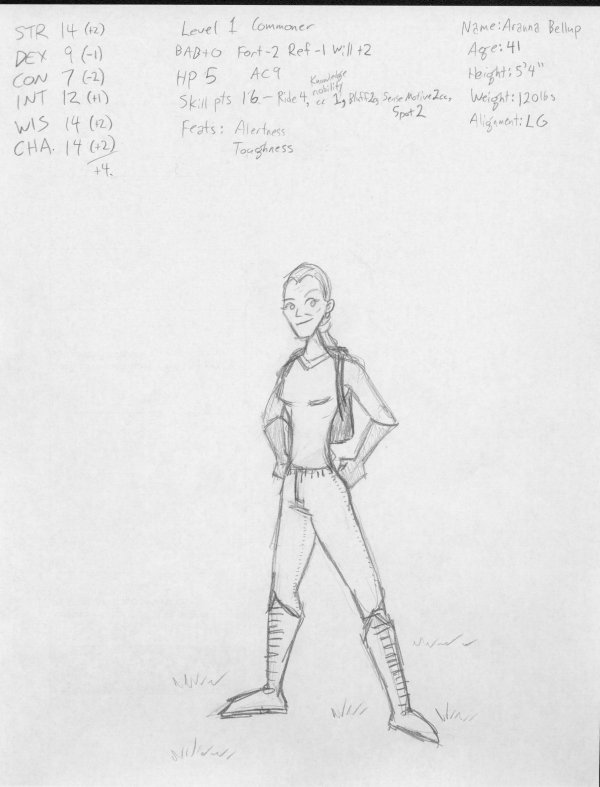 STR 14 (+2)
DEX 9 (-1)
CON 7 (-2)
INT 12 (+1)
WIS 14 (+2)
CHA. 14 (+2)
+4.
Level 1 Commoner
BAB+0 Fort-2 Ref-1 Will+2
HP 5 AC9
Skill pts 16 - Ride 4, Knowledge nobility cc 1, Bluff 2cc, Sense Motive 2cc,
Spot 2
Feats: Alertness
Toughness
Name: Aranna Bellup
Age: 41
Height: 5'4"
Weight: 120lbs
Alignment: LG